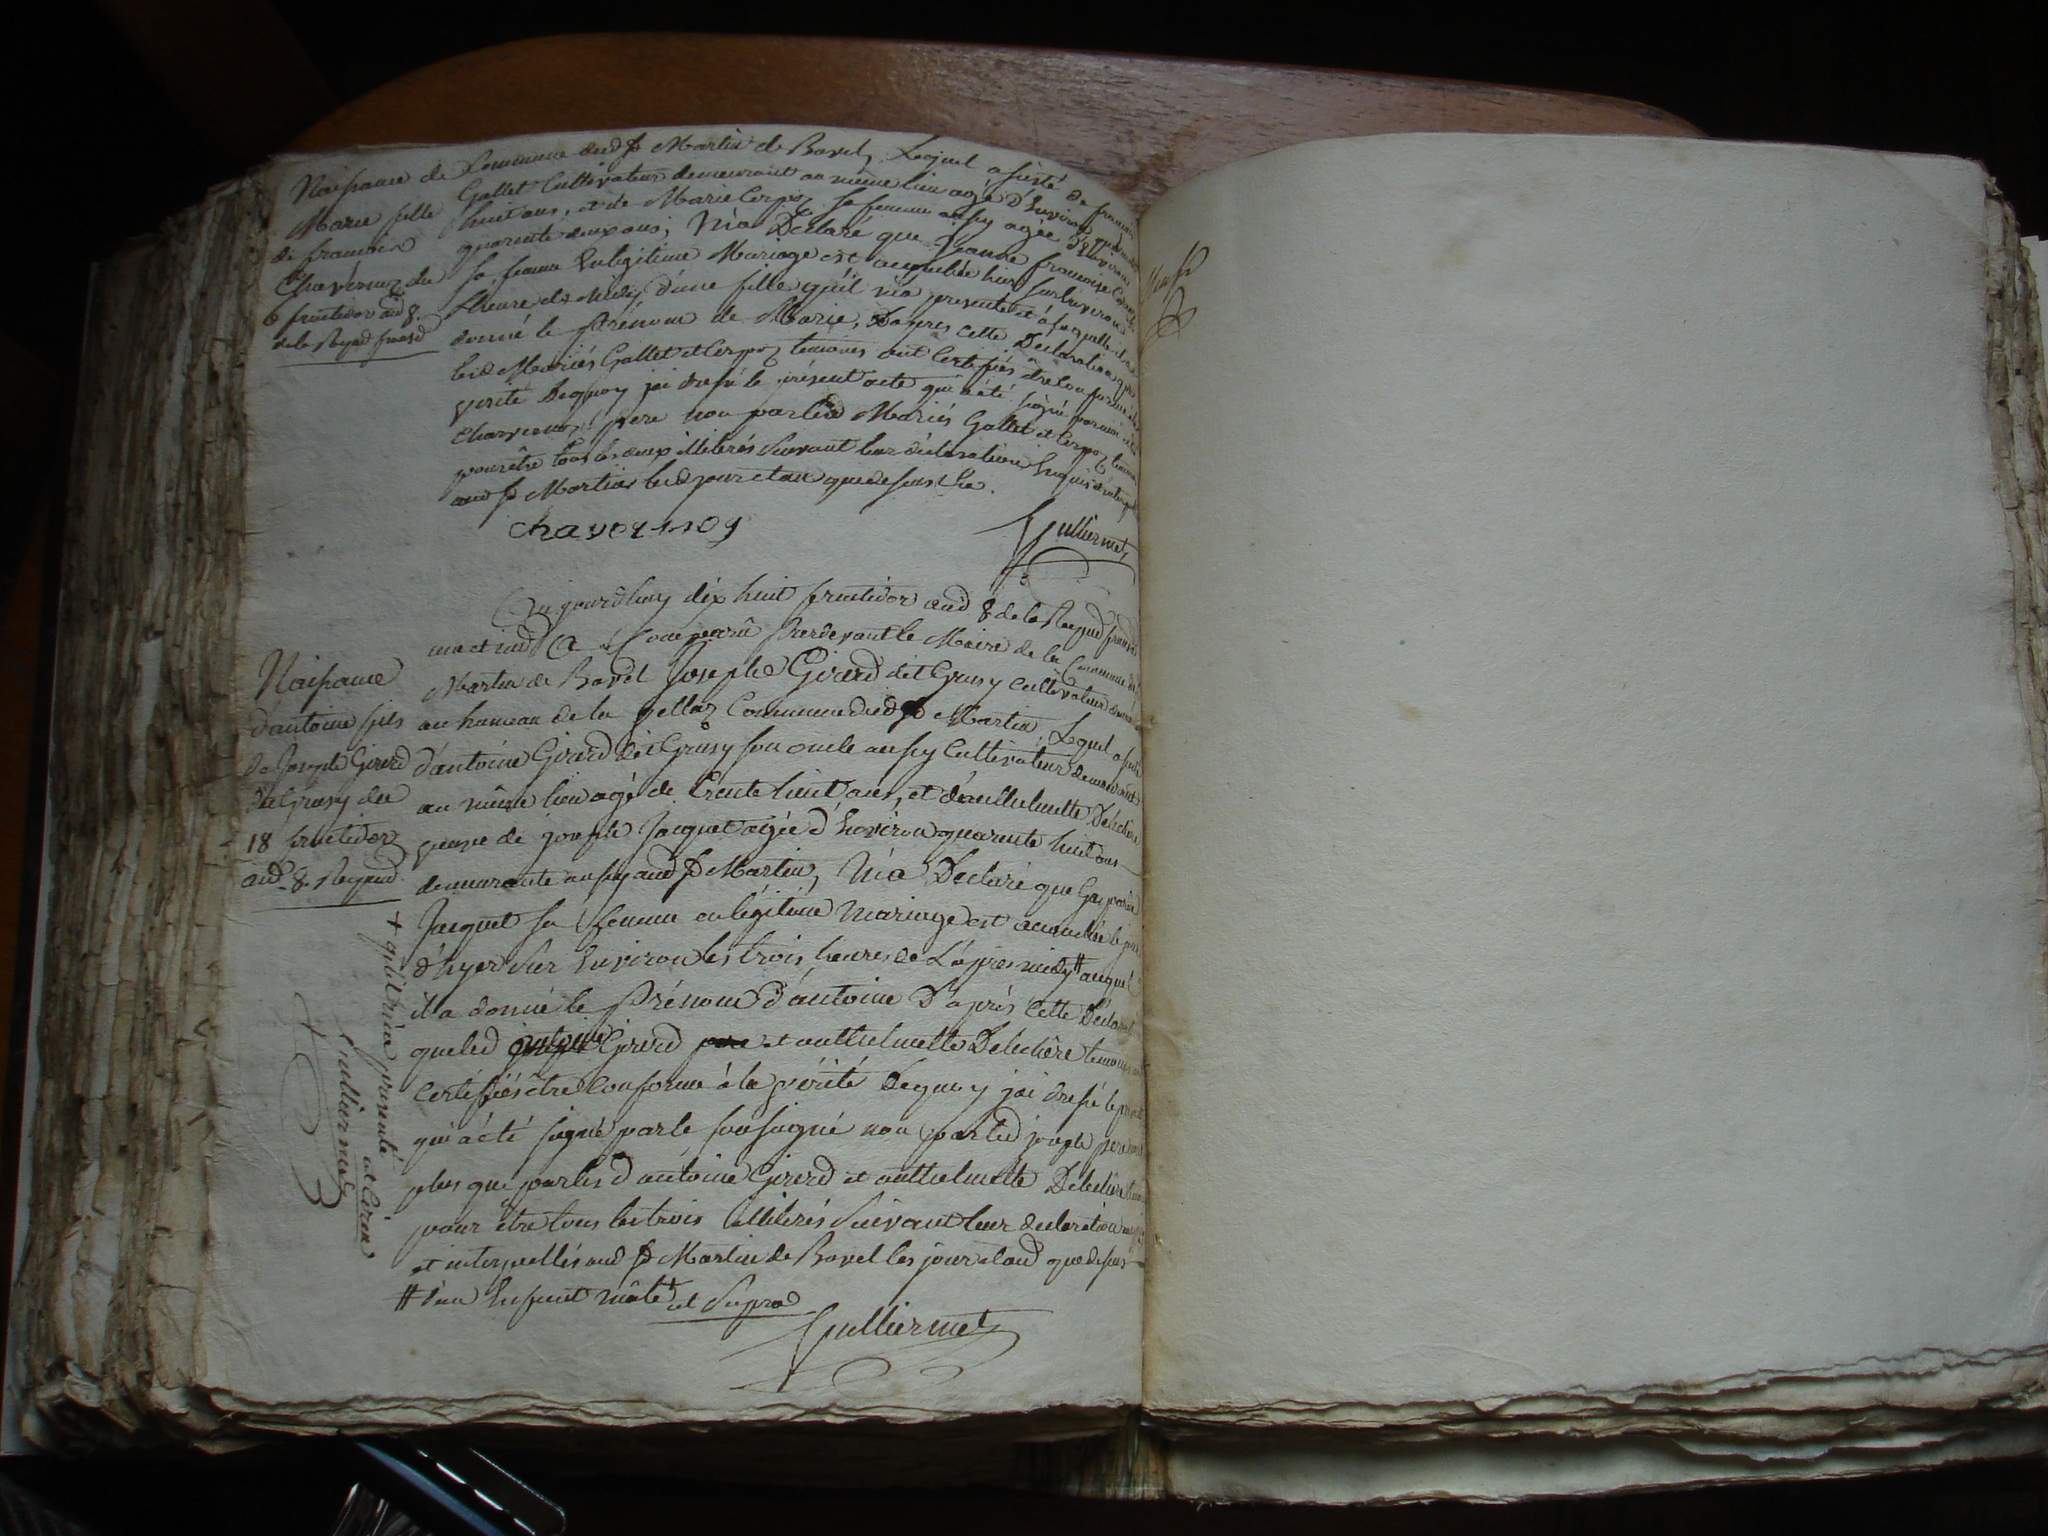 Naissance de
Marie fille
de francois
Chavernoz du
6 fructidor and 8.
de la Repud fransd
Commune dud St Martin de Bavel, Lequel assisté de francois
Gallet Cultivateur demeurant au même lieu agé d'Environ quarante
huit ans, et de Marie Cerpoz sa femme aussy agée d'Environ
quarante deux ans, M'a Déclaré que Jeanne francoise
sa femme En légitime Mariage est accouchée hier sur Environ
L'heure de Midy d'une fille qu'il m'a presenté et à laquelle il a
donné le Prénom de Marie, D'apres cette Déclaration que
lesd Mariés Gallet et Cerpoz temoins ont Certifiés être Conforme à la
verité Dequoy jai dressé le présent acte qui a été signé par moi et led
Chavernoz pere non par lesd Mariés Gallet et Cerpoz temoins
pour être tous les deux illiterés suivant leur déclaration Enquis et interpellés
aud St Martin lesd jour et an que dessus
chavernoz
Gulliermet
Naissance
d'antoine fils
de Joseph Girerd
dit Grusy du
18 fructidor
and 8. Repud
Aujourdhuy dix huit fructidor and 8 de la Repud fransd
une et indd a Comparu Pardevant le Maire de la Commune de St
Martin de Bavel Joseph Girerd dit Grusy cultivateur demeurant
au hameau de la vellaz Commune dud St Martin, Lequel assisté
d'antoine Girerd dit Grusy son oncle aussy Cultivateur demeurant
au même lieu agé de trente huit ans, et d'anthelmette Delechere
veuve de joseph Jacquet agée d'Environ quarante huit ans
demeurante aussy aud St Martin, M'a Déclaré que Gasparde
Jacquet sa femme en légitime Mariage est accouchée le jour
d'hyer sur Environ les trois heures de L'après midy # auquel
il a donné le Prénom d'antoine D'après Cette Déclaration
que led antoine Girerd et anthelmette Delechère temoins ont
certifiés être Conforme à la vérité Dequoy jai dressé le present
qui a été signé par le soussigné non par led joseph pere non
plus que par lesd antoine Girerd et anthelmette Delechère temoins
pour être tous les trois illiterés suivant leur declaration enquis
et interpellés aud St Martin de Bavel les jour et and que dessus
# d'un Enfant mâle + ut Supra
Gulliermet
+ qu'il m'a presenté
Gulliermet